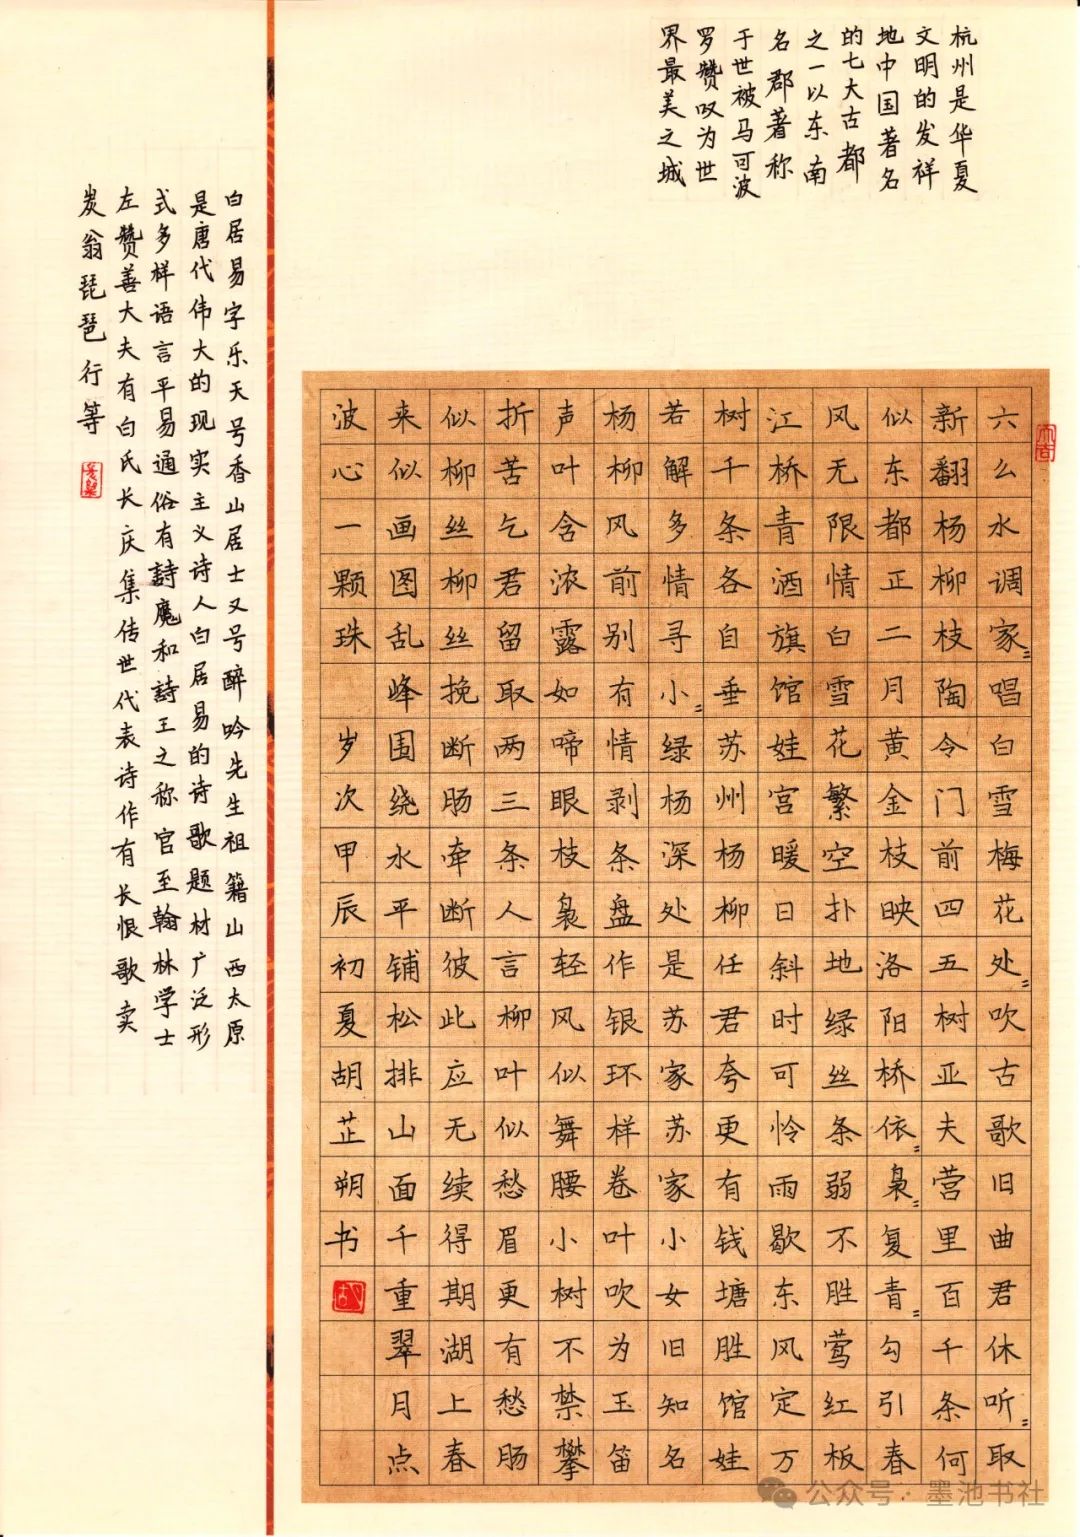 杭州是华夏
文明的发祥
地中国著名
的七大古都
之一以东南
名郡著称
于世被马可波
罗赞叹为世
界最美之城
六么水调家〻唱白雪梅花处〻吹古歌旧曲君休听〻取
新翻杨柳枝陶令门前四五树亚夫营里百千条何
似东都正二月黄金枝映洛阳桥依〻袅〻复青〻勾引春
风无限情白雪花繁空扑地绿丝条弱不胜莺红板
江桥青酒旗馆娃宫暖日斜时可怜雨歇东风定万
树千条各自垂苏州杨柳任君夸更有钱塘胜馆娃
若解多情寻小〻绿杨深处是苏家苏家小女旧知名
杨柳风前别有情剥条盘作银环样卷叶吹为玉笛
声叶含浓露如啼眼枝袅轻风似舞腰小树不禁攀
折苦乞君留取两三条人言柳叶似愁眉更有愁肠
似柳丝柳丝挽断肠牵断彼此应无续得期湖上春
来似画图乱峰围绕水平铺松排山面千重翠月点
波心一颗珠 岁次甲辰初夏胡芷朔书
白居易字乐天号香山居士又号醉吟先生祖籍山西太原
是唐代伟大的现实主义诗人白居易的诗歌题材广泛形
式多样语言平易通俗有詩魔和詩王之称官至翰林学士
左赞善大夫有白氏长庆集传世代表诗作有长恨歌卖
炭翁琵琶行等
公众号·墨池书社